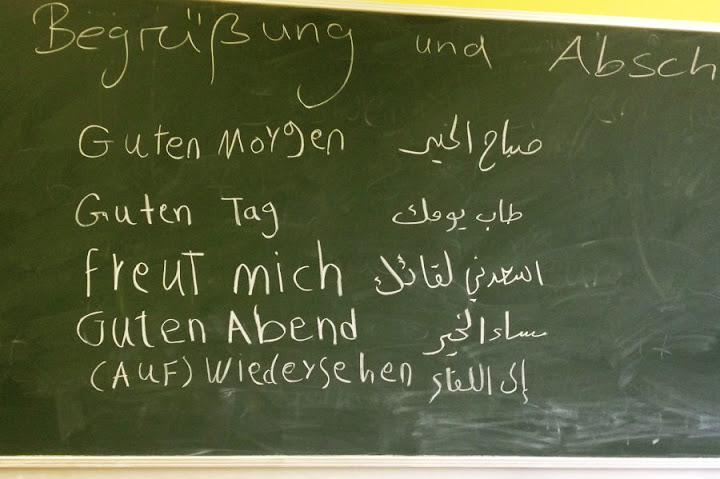 Begrüßung und Absch
Guten Morgen صباح الخير
Guten Tag طاب يومك
Freut mich اسعدني لقائك
Guten Abend مساء الخير
(Auf) Wiedersehen إلى اللقاء